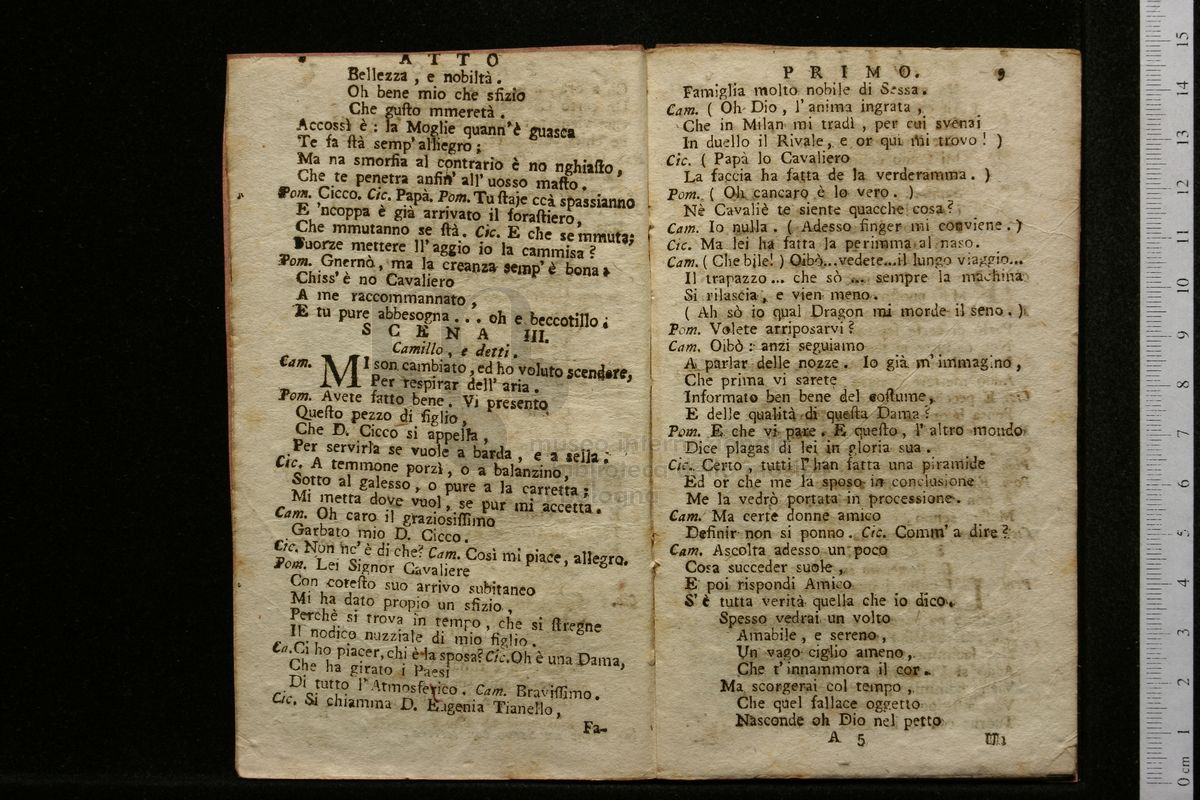 ATTO
Bellezza, e nobiltà.
Oh bene mio che sfizio
Che gusto mmeretà.
Accossì è: la Moglie quann'è guasta
Te fa stà semp'alliegro;
Ma na smorfia al contrario è no nghiasto,
Che te penetra anfin' all'uosso masto.
Pom. Cicco. Cic. Papà. Pom. Tu staje ccà spassianno
E 'ncoppa è già arrivato il forastiero,
Che mmutanno se stà. Cic. E che se mmuta;
Fuorze mettere ll'aggio io la cammisa?
Pom. Gnernò, ma la creanza semp'è bona,
Chiss'è no Cavaliero
A me raccommannato,
E tu pure abbesogna... oh e beccotillo.
SCENA III.
Camillo, e detti.
Cam. MI son cambiato, ed ho voluto scendere,
Per respirar dell'aria.
Pom. Avete fatto bene. Vi presento
Questo pezzo di figlio,
Che D. Cicco si appella,
Per servirla se vuole a barda, e a sella.
Cic. A temmone porzì, o a balanzino,
Sotto al galesso, o pure a la carretta;
Mi metta dove vuol, se pur mi accetta.
Cam. Oh caro il graziosissimo
Garbato mio D. Cicco.
Cic. Non nc'è di che? Cam. Così mi piace, allegro.
Pom. Lei Signor Cavaliere
Con cotesto suo arrivo subitaneo
Mi ha dato propio un sfizio,
Perchè si trova in tempo, che si stregne
Il nodico nuzziale di mio figlio.
Ca. Ci ho piacer, chi è la sposa? Cic. Oh è una Dama,
Che ha girato i Paesi
Di tutto l'Atmosferico. Cam. Bravissimo.
Cic. Si chiamma D. Eugenia Tianello,
Fa-
PRIMO. 9
Famiglia molto nobile di Sessa.
Cam. ( Oh Dio, l'anima ingrata,
Che in Milan mi tradì, per cui svenai
In duello il Rivale, e or qui mi trovo! )
Cic. ( Papà lo Cavaliero
La faccia ha fatta de la verderamma. )
Pom. ( Oh cancaro è lo vero. )
Nè Cavaliè te siente quacche cosa?
Cam. Io nulla. ( Adesso finger mi conviene. )
Cic. Ma lei ha fatta la perimma al naso.
Cam. ( Che bile! ) Oibò...vedete...il lungo viaggio...
Il trapazzo... che sò ... sempre la machina
Si rilascia, e vien meno.
( Ah sò io qual Dragon mi morde il seno. )
Pom. Volete arriposarvi?
Cam. Oibò: anzi seguiamo
A parlar delle nozze. Io già m'immagino,
Che prima vi sarete
Informato ben bene del costume,
E delle qualità di questa Dama?
Pom. E che vi pare. E questo, l'altro mondo
Dice plagas di lei in gloria sua.
Cic. Certo, tutti l'han fatta una piramide
Ed or che me la sposo in conclusione
Me la vedrò portata in processione.
Cam. Ma certe donne amico
Definir non si ponno. Cic. Comm'a dire?
Cam. Ascolta adesso un poco
Cosa succeder suole,
E poi rispondi Amico
S'è tutta verità quella che io dico.
Spesso vedrai un volto
Amabile, e sereno,
Un vago ciglio ameno,
Che t'innammora il cor.
Ma scorgerai col tempo,
Che quel fallace oggetto
Nasconde oh Dio nel petto
A 5